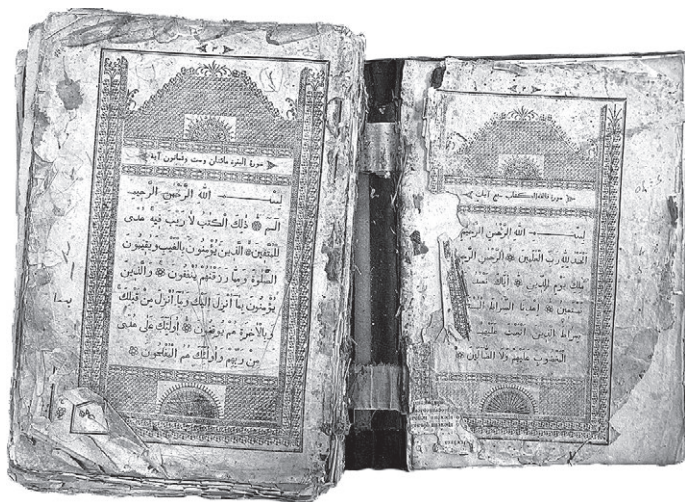 ٢
سورة فاتحة الكتاب سبع آيات
بسم الله الرحمن الرحيم
الحمد لله رب العلمين الرحمن الرحيم
ملك يوم الدين اياك نعبد
نستعين اهدنا الصراط
صراط الذين انعمت عليهم
المغضوب عليهم ولا الضالين
٣
سورة البقرة مائتان وست وثمانون آية
بِسْمِ اللهِ الرَّحْمٰنِ الرَّحِيمِ
الٓمٓ ذٰلِكَ الْكِتٰبُ لَا رَيْبَ فِيهِ هُدًى
لِلْمُتَّقِينَ الَّذِينَ يُؤْمِنُونَ بِالْغَيْبِ وَيُقِيمُونَ
الصَّلٰوةَ وَمِمَّا رَزَقْنٰهُمْ يُنْفِقُونَ وَالَّذِينَ
يُؤْمِنُونَ بِمَا اُنْزِلَ اِلَيْكَ وَمَا اُنْزِلَ مِنْ قَبْلِكَ
وَبِالْاٰخِرَةِ هُمْ يُوقِنُونَ اُولٰئِكَ عَلٰى هُدًى
مِنْ رَبِّهِمْ وَاُولٰئِكَ هُمُ الْمُفْلِحُونَ